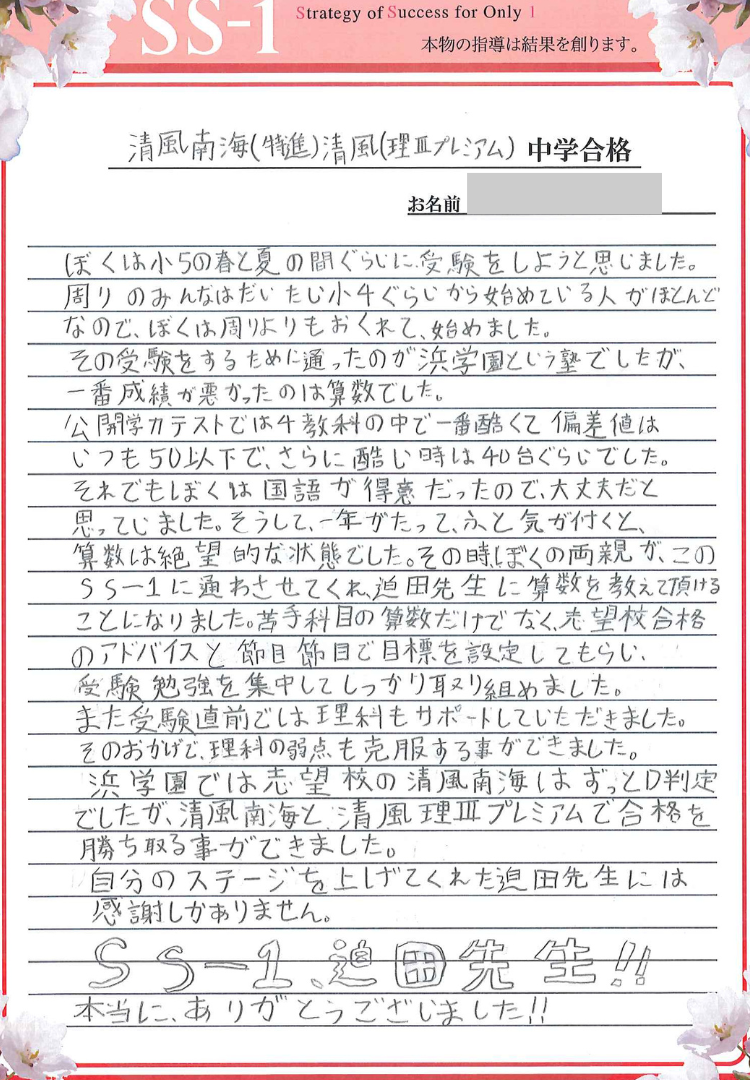 SS-1
Strategy of Success for Only 1
本物の指導は結果を創ります。
清風南海(特進)清風(理Ⅲプレミアム) 中学合格
お名前
ぼくは小5の春と夏の間ぐらいに、受験をしようと思いました。
周りのみんなはだいたい小4ぐらいから始めている人がほとんど
なので、ぼくは周りよりもおくれて、始めました。
その受験をするために通ったのが浜学園という塾でしたが、
一番成績が悪かったのは算数でした。
公開学力テストでは4教科の中で一番酷くて偏差値は
いつも50以下で、さらに酷い時は40台ぐらいでした。
それでもぼくは国語が得意だったので、大丈夫だと
思っていました。そうして、一年がたって、ふと気が付くと、
算数は絶望的な状態でした。その時、ぼくの両親が、この
SS-1に通わさせてくれ、迫田先生に算数を教えて頂ける
ことになりました。苦手科目の算数だけでなく、志望校合格
のアドバイスと節目節目で目標を設定してもらい、
受験勉強を集中してしっかり取り組めました。
また受験直前では理科もサポートしていただきました。
そのおかげで、理科の弱点も克服する事ができました。
浜学園では志望校の清風南海はずっとD判定
でしたが、清風南海と、清風理Ⅲプレミアムで合格を
勝ち取る事ができました。
自分のステージを上げてくれた迫田先生には
感謝しかありません。
SS-1、迫田先生!!
本当に、ありがとうございました!!